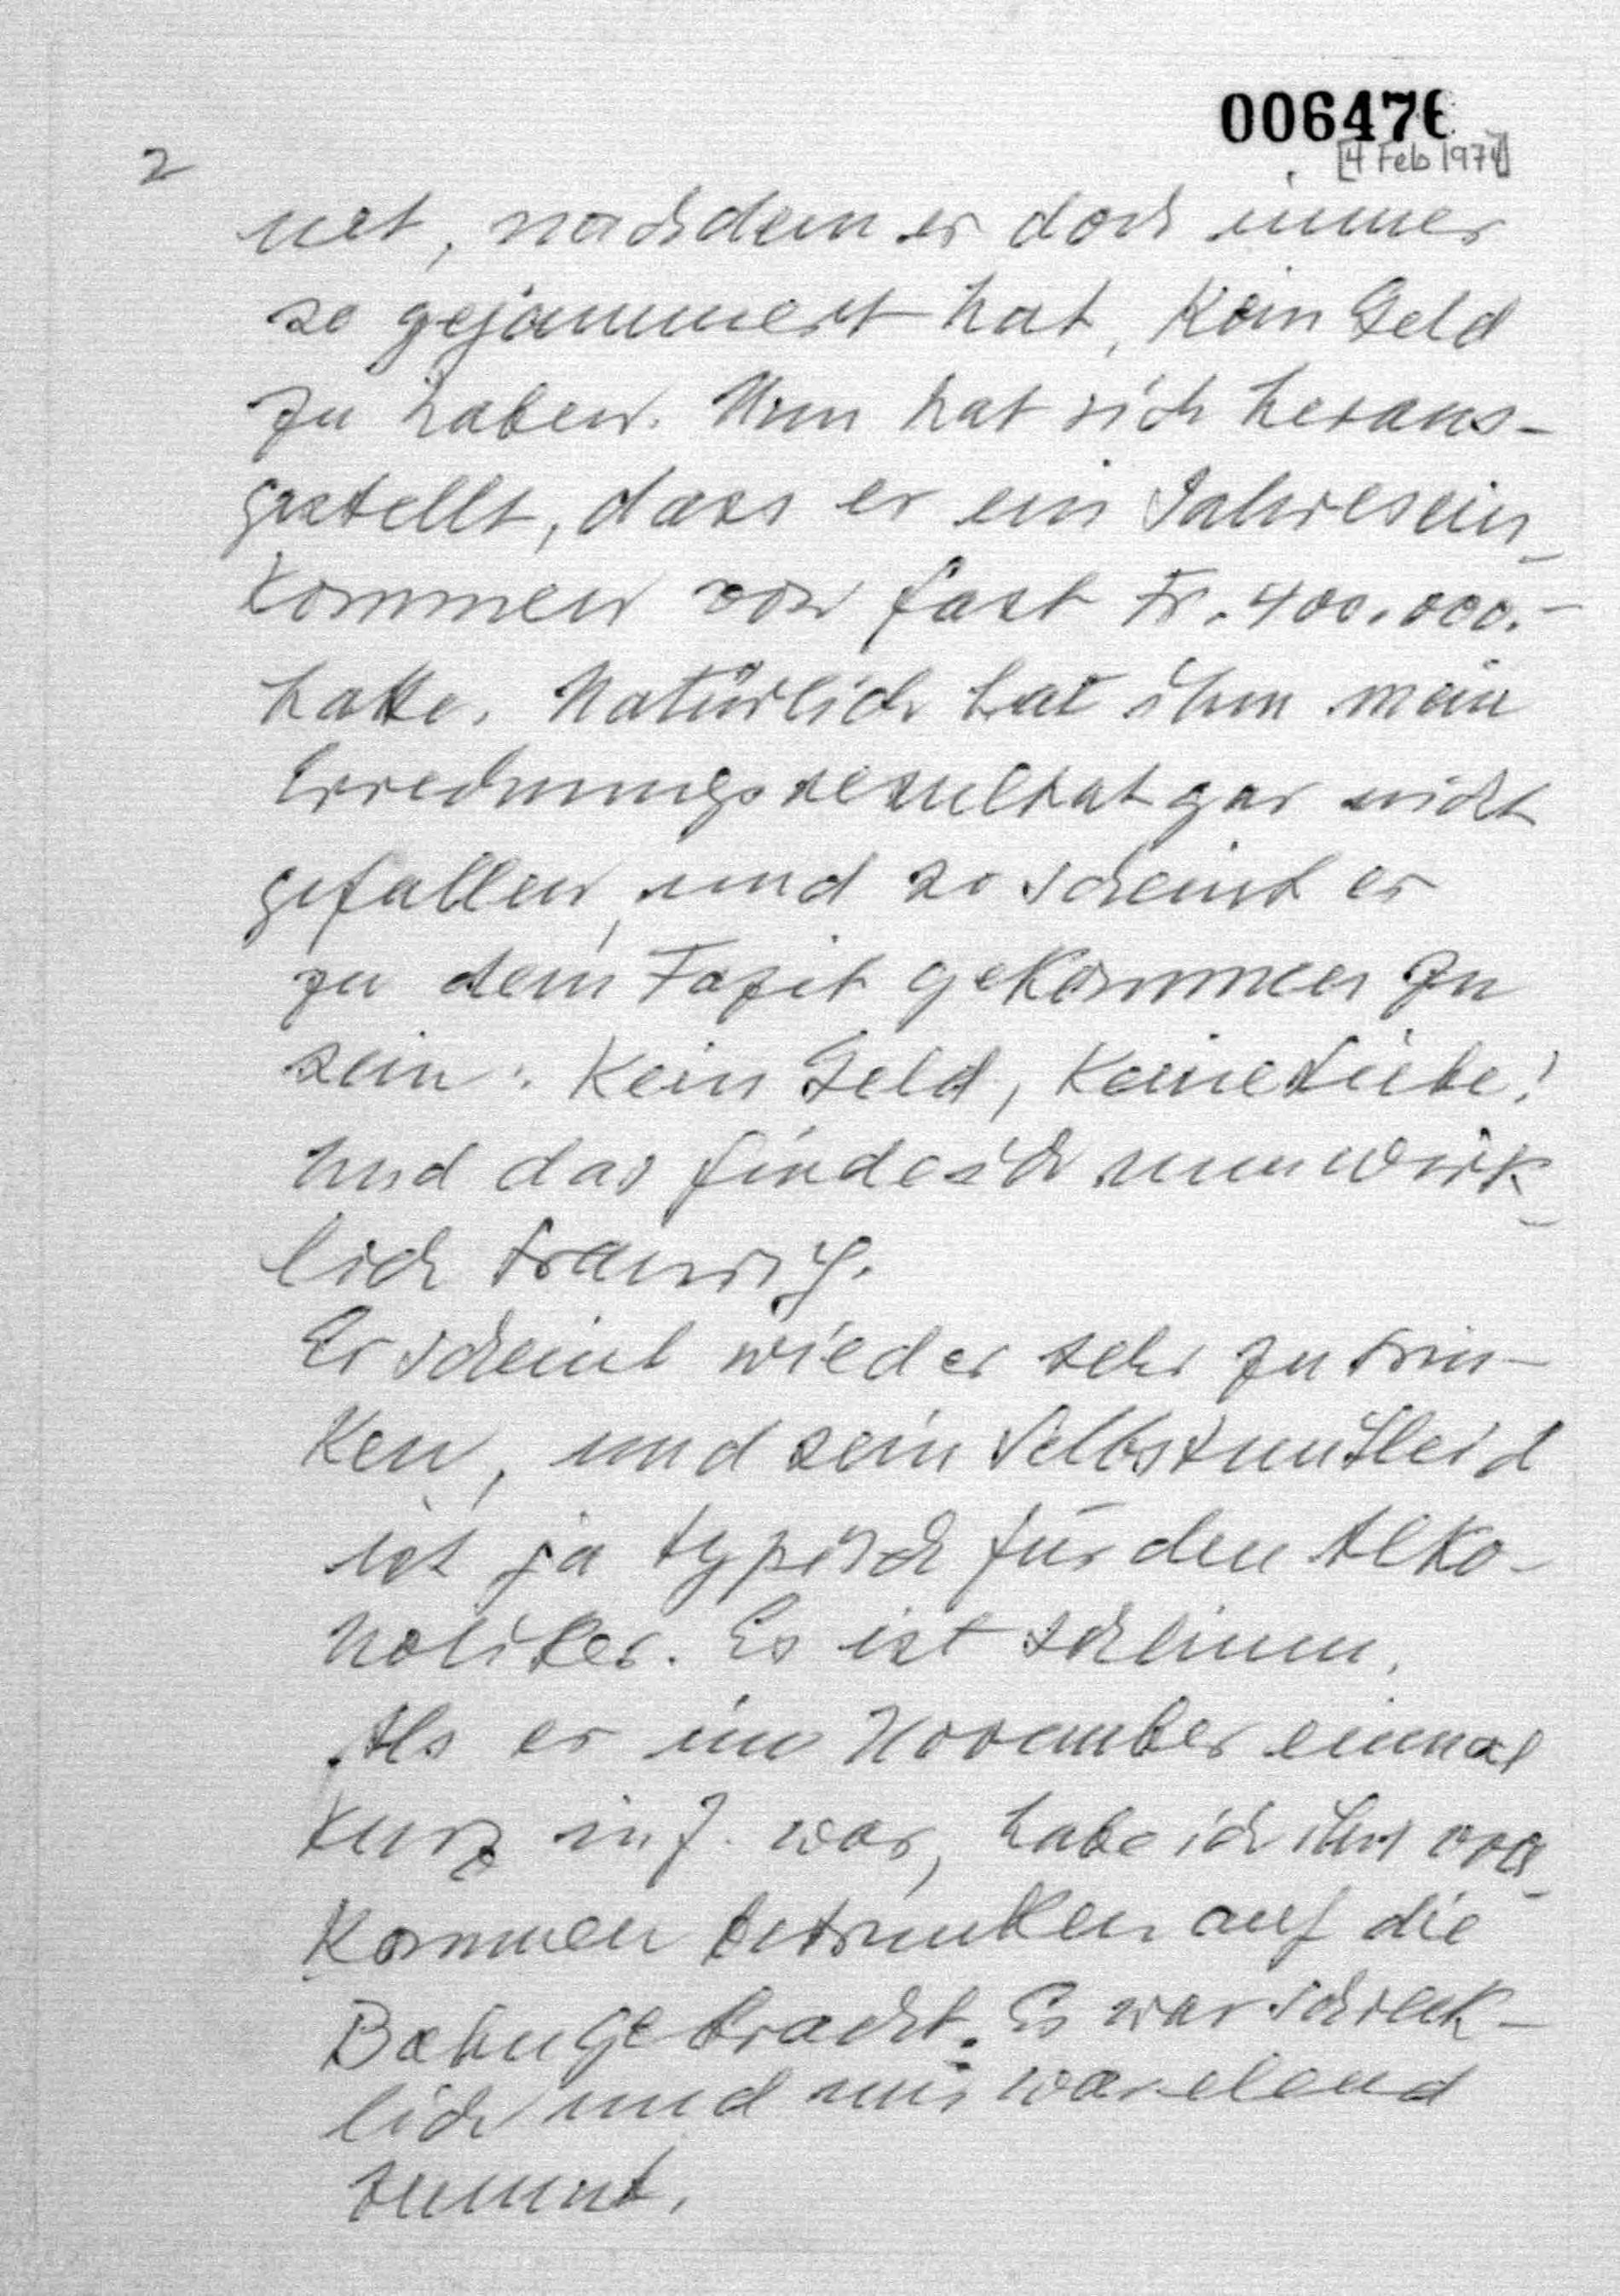 006476
[4 Feb 1974]
2
net, nachdem er doch immer
so gejammert hat, kein Geld
zu haben. Nun hat sich heraus-
gestellt, dass er ein Jahresein-
kommen von fast Fr. 400.000.-
hatte. Natürlich hat ihm mein
Errechnungsresultat gar nicht
gefallen, und so scheint er
zu dem Fazit gekommen zu
sein: Kein Geld, keine Liebe!
Und das finde ich nun wirk-
lich traurig.
Er scheint wieder sehr zu trin-
ken, und sein Selbstmitleid
ist ja typisch für den Alko-
holiker. Es ist schlimm.
Als er im November einmal
kurz in Z. war, habe ich ihn voll-
kommen betrunken auf die
Bahn gebracht. Es war schreck-
lich und mir war elend
zumut.